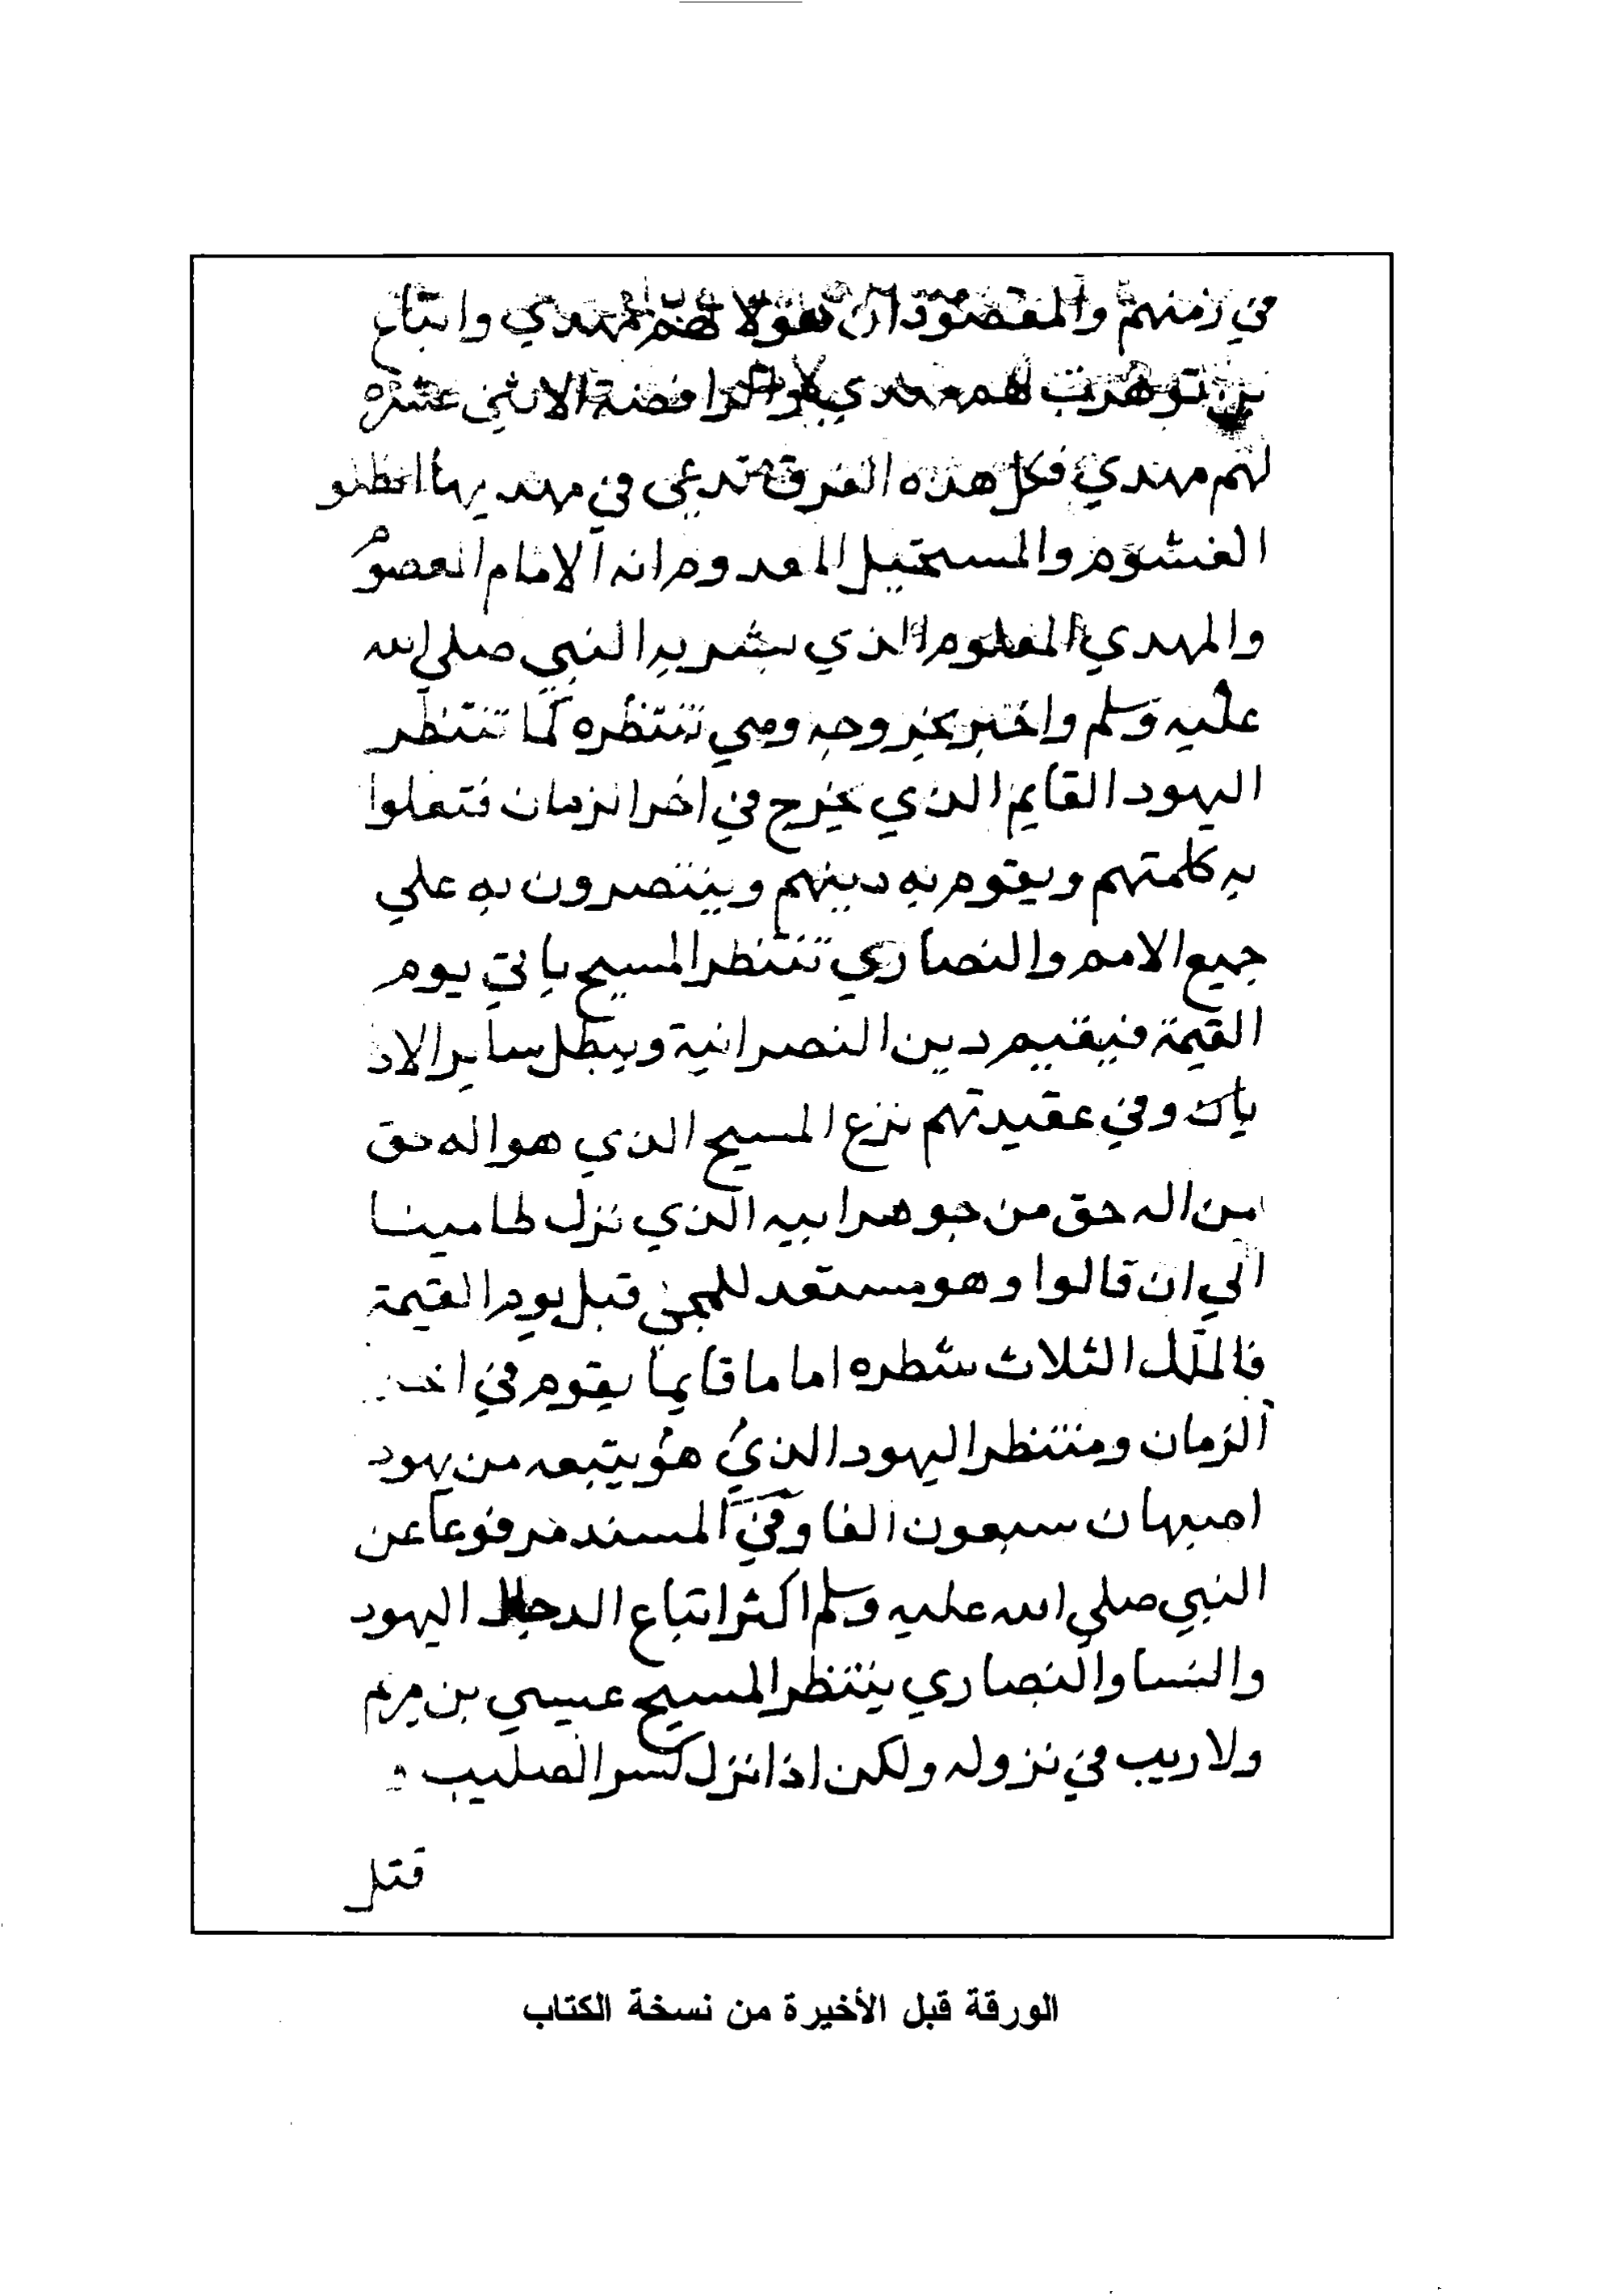 في زمنهم والمقصود ان هولا لهم مهدي واتباع
بن تومرت لهم مهدي والرافضة الاثني عشره
لهم مهدي فكل هذه الفرق تدعي في مهديها الظلو
الغشوم والمستحيل المعدوم انه الامام المعصوم
والمهدي المعلوم الذي بشر به النبي صلي الله
عليه وسلم واخبر بخروجه وهي تنتظره كما تنتظر
اليهود القايم الذي يخرج في اخر الزمان فتعلوا
به كلمتهم ويقوم به دينهم وينتصرون به علي
جميع الامم والنصاري تنتظر المسيح ياتي يوم
القيمة فيقيم دين النصرانية ويبطل ساير الاد
يان وفي عقيدتهم نزع المسيح الذي هو اله حق
من اله حق من جوهر ابيه الذي نزل طامينا
الي ان قالوا وهو مستعد للمجئ قبل يوم القيمة
فالملل الثلاث تنتظره اماما قايما يقوم في اخر
الزمان ومنتظر اليهود الذي هو يتبعه من يهود
اصبهان سبعون الفا وفي المسند مرفوعا عن
النبي صلي الله عليه وسلم اكثر اتباع الدجال اليهود
والنسا والنصاري ينتظر المسيح عيسي بن مريم
ولا ريب في نزوله ولكن اذا نزل كسر الصليب و
قتل
الورقة قبل الأخيرة من نسخة الكتاب